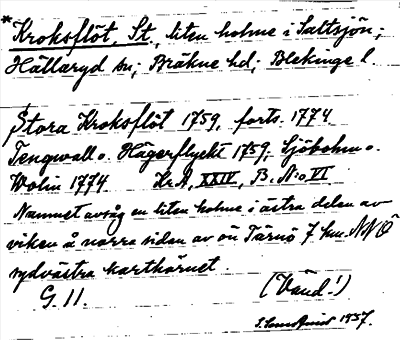 *Kroksflöt, St., liten holme i Saltsjön;
Hällaryd sn; Bräkne hd; Blekinge l.
Stora Kroksflöt 1759, forts. 1774
Tengwall o. Hägerflyckt 1759, Sjöbohm o.
Wolin 1774 Kr.A, XXIV, B. N:o VI
Namnet avsåg en liten holme i östra delen av
viken å norra sidan av ön Tärnö 7 km. NNÖ
sydvästra karthörnet.
G. 11. (Vänd!)
1937.